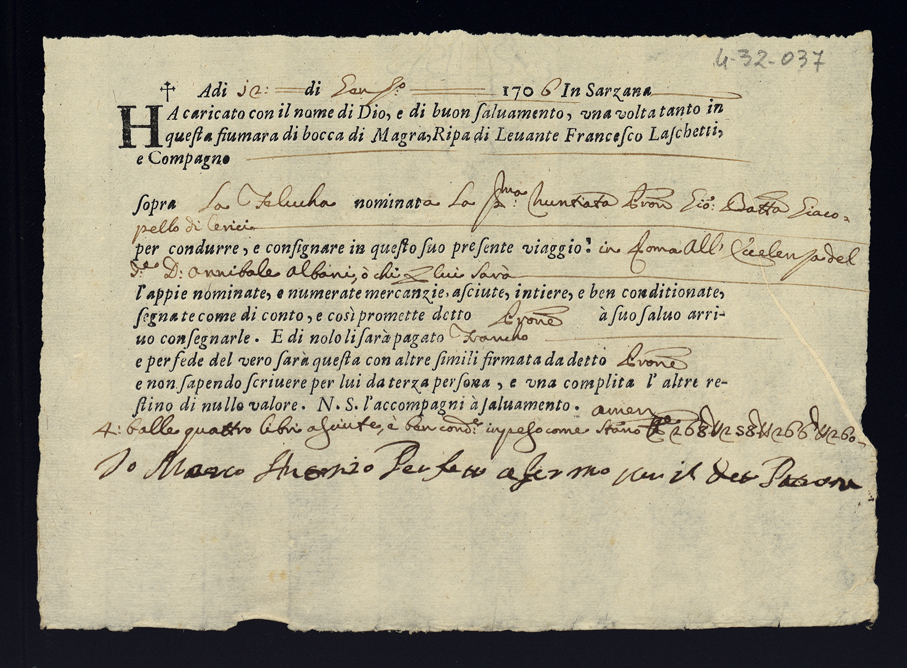 4-32-037
✝ Adi 12: di Gen.ro 1706 In Sarzana
HA caricato con il nome di Dio, e di buon saluamento, vna volta tanto in
questa fiumara di bocca di Magra, Ripa di Leuante Francesco Laschetti,
e Compagno
sopra La Felucha nominata La S.ma Nuntiata Prone Gio: Batta Giaco-
pello di Lerici
per condurre, e consignare in questo suo presente viaggio: in Roma All' del
D: Annibale Albani, ò chi lui sarà
l'appie nominate, e numerate mercanzie, asciute, intiere, e ben conditionate,
segnate come di conto, e così promette detto Prone à suo saluo arri-
uo consegnarle. E di nolo li sarà pagato Francho
e per fede del vero sarà questa con altre simili firmata da detto Prone
e non sapendo scriuere per lui da terza persona, e vna complita l'altre re-
stino di nullo valore. N. S. l'accompagni à saluamento. amen
4: balle quattro libri asciute, è ben cond.e in peso come stano 268 258 266 260
Io Marco Perfetto afermo per il deto Patrone